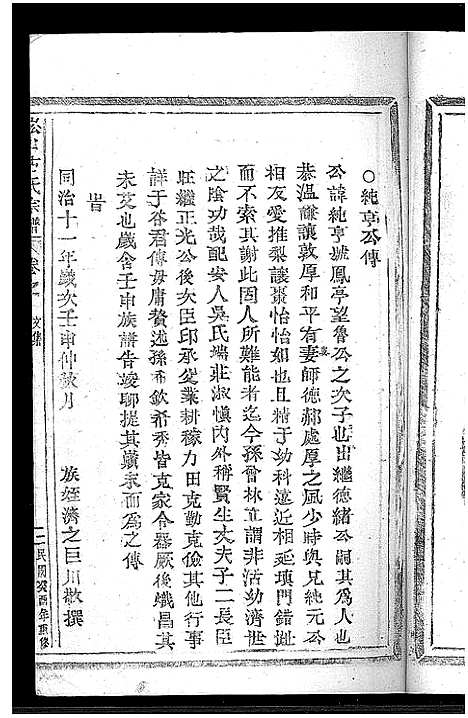 ○純亨公傳
公諱純亨號鳳亭望魯公之次子也出繼德緒公嗣其為人也
恭温謙讓敦厚和平有婁師德郝處厚之風少時與兄純元公
相友愛推梨讓棗怡怡如也且精于幼科遠近相延填門錯趾
而不索其謝此固人所難能者迄今孫曾林立謂非活幼濟世
之陰功哉配安人吳氏端莊淑慎内外稱賢生丈夫子二長臣
旺繼正光公後次臣邱承父業耕稼力田克勤克儉其他行事
詳于谷君傳毋庸贅述孫希欽希秀皆克家令器厥後熾昌其
未艾也歲舍壬申族譜告竣聊提其顛末而為之傳
旹
同治十一年歲次壬申仲秋月
族姪濟之巨川敬撰
氏宗譜
卷之
文集
二
民國癸酉年重修